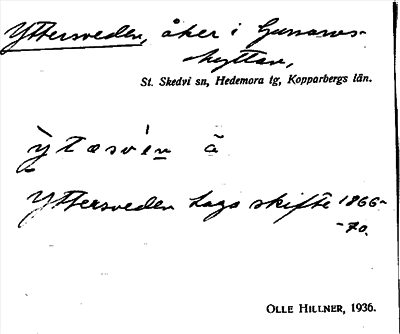 Yttersveden, åker i Gunnars-
hyttan,
St. Skedvi sn, Hedemora tg, Kopparbergs län.
Yttersveden Laga skifte 1866-
-70.
OLLE HILLNER, 1936.